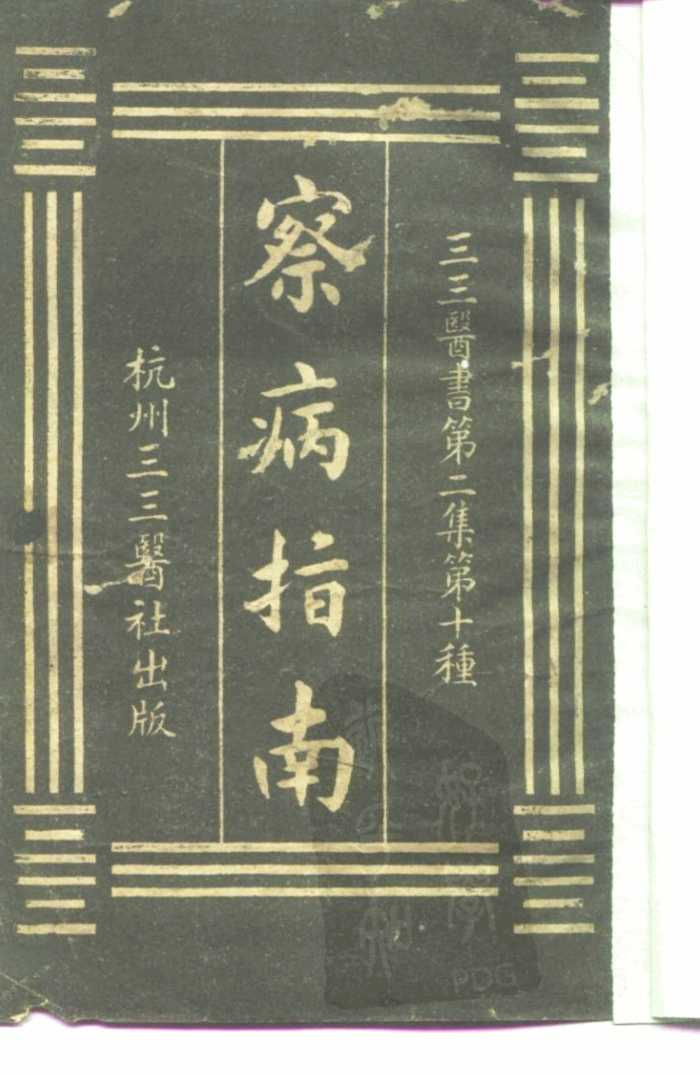 三三醫書第二集第十種
察病指南
杭州三三醫社出版
PDG